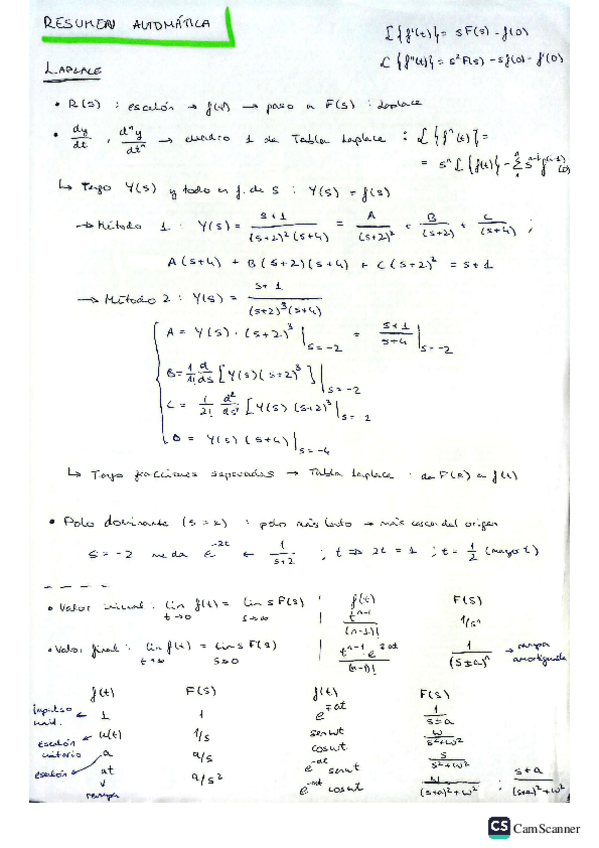 RESUMEN AUTOMÁTICA
L{f'(t)} = sF(s) - f(0)
L{f''(t)} = s²F(s) - sf(0) - f'(0)
LAPLACE
• R(s) : escalón → f(t) → paso a F(s) : Laplace
• dy/dt , dⁿy/dtⁿ → cuadro 1 de Tabla Laplace : L{fⁿ(t)} =
= sⁿ L{f(t)} - Σ
↳ Tengo Y(s) y todo en f. de s : Y(s) = f(s)
→ Método 1 : Y(s) = (s+1)/((s+2)²(s+4)) = A/(s+2)² + B/(s+2) + C/(s+4) ;
A(s+4) + B(s+2)(s+4) + C(s+2)² = s+1
→ Método 2 : Y(s) = (s+1)/((s+2)³(s+4))
A = Y(s) · (s+2)³ |s=-2 = (s+1)/(s+4) |s=-2
B = 1/1! d/ds [Y(s)(s+2)³] |s=-2
C = 1/2! d²/ds² [Y(s)(s+2)³ |s=-2
D = Y(s)(s+4) |s=-4
↳ Tengo fracciones separadas → Tabla Laplace : de F(s) a f(t)
• Polo dominante : polo más lento → más cerca del origen
s = -2 me da e^-2t ← 1/(s+2) ; t ⇒ 2t = 1 ; t = 1/2 (mayor t)
• Valor inicial : lim t→0 f(t) = lim s→∞ sF(s)
f(t) F(s)
tⁿ⁻¹/(n-1)! 1/sⁿ
• Valor final : lim t→∞ f(t) = lim s→0 sF(s)
tⁿ⁻¹ e^∓at/(n-1)! 1/(s±a)ⁿ → rampa amortiguada
f(t) F(s) f(t) F(s)
impulso unit. ← 1 1 e^∓at 1/(s±a)
escalón unitario ← u(t) 1/s senwt w/(s²+w²)
escalón ← a a/s coswt s/(s²+w²)
at a/s² e^-at senwt
↓ rampa e^-at coswt w/((s+a)²+w²) ; (s+a)/((s+a)²+w²)
CS CamScanner